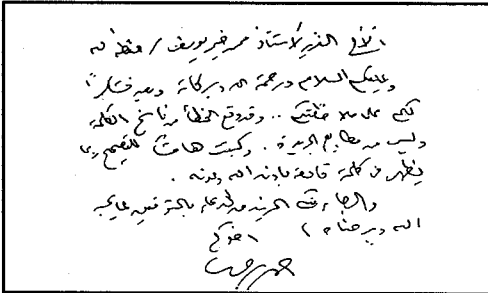 الأخ العزيز الأستاذ محمد خير يوسف / حفظه الله
وعليكم السلام ورحمة الله وبركاته وبعد فشكراً
لكم على ملاحظتكم .. وقد وقع الخطأ من ناسخ الكلمة
وليس من مطابع الجريدة . وكتبت هامشاً للتصحيح ربما
يظهر في كلمة قادمة بإذن الله وعونه .
والرجاء المزيد من الدعاء بالتوفيق لما يحبه
الله ويرضاه ،
أخوكم